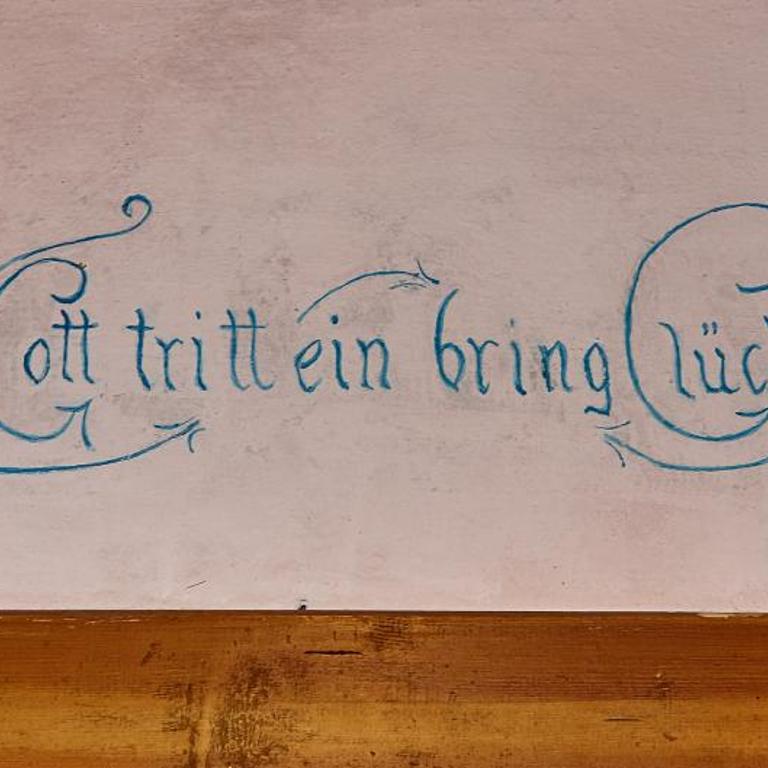 Gott tritt ein bring